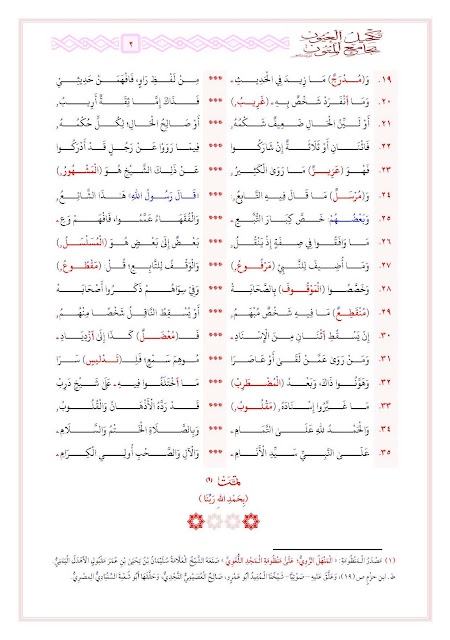 تكحيل العيون
بجامع المتون
٢
١٩. وَ(مُدْرَجٌ) مَا زِيدَ فِي الْحَدِيثِ ۞۞۞ مِنْ لَفْظِ رَاوٍ، فَافْهَمَنْ حَدِيثِيْ
٢٠. وَمَا انْفَرَدْ شَخْصٌ بِهِ (غَرِيبُ) *** فَذَاكَ إِمَّا ثِقَةٌ أَرِيبُ،
٢١. أَوْ لَيِّنُ الْحَالِ ضَعِيفٌ حُكْمُهُ، *** أَوْ صَالِحُ الْحَالِ؛ لِكُلٍّ حُكْمُهُ،
٢٢. فَاثْنَانِ أَوْ ثَلَاثَةٌ إِنْ شَارَكُوا *** فِيمَا رَوَوْا عَنْ رَجُلٍ قَدْ أَدْرَكُوا
٢٣. فَهْوَ (عَزِيزٌ) مَا رَوَى الْكَثِيرُ، *** عَنْ ذَلِكَ الشَّيْخِ هُوَ (الْمَشْهُورُ)
٢٤. وَ(مُرْسَلٌ) مَا قَالَ فِيهِ التَّابِعُ، *** «قَالَ رَسُولُ اللهِ» هَذَا الشَّائِعُ،
٢٥. وَبَعْضُهُمْ خَصَّ كِبَارَ التَّبَعِ *** وَالْفُقَهَاءُ عَمَّمُوا، فَافْهَمْ وَعِ
٢٦. مَا وَافَقُوا فِي صِفَةٍ إِذْ يَنْقُلُ، *** بَعْضٌ إِلَى بَعْضٍ هُوَ (الْمُسَلْسَلُ)
٢٧. وَمَا أُضِيفَ لِلنَّبِيْ (مَرْفُوعُ) *** وَالْوَقْفُ لِلتَّابِعِ؛ قُلْ: (مَقْطُوعُ)
٢٨. وَخَصَّصُوا (الْمَوْقُوفَ) بِالصَّحَابَهْ *** وَفِي سِوَاهُمْ ذَكَرُوا أَصْحَابَهْ
٢٩. (مُنْقَطِعٌ) مَا فِيهِ شَخْصٌ مُبْهَمُ، *** أَوْ يُسْقِطُ النَّاقِلُ شَخْصًا مِنْهُمُ،
٣٠. إِنْ يَسْقُطِ اثْنَانِ مِنَ الْإِسْنَادِ *** فَـ(مُعْضَلٌ) كَذَا إِلَى ازْدِيَادِ
٣١. وَمَنْ رَوَى عَمَّنْ لَقَى أَوْ عَاصَرَا *** مُوهِمَ سَمْعٍ؛ فَلِـ(تَدْلِيسٍ) سَرَا
٣٢. وَهَوَّنُوا ذَاكَ، وَبَعْدُ (الْمُضْطَرِبْ) *** مَا اخْتَلَفُوا فِيهِ عَلَى شَيْخٍ دَرِبْ
٣٣. مَا غَيَّرُوا إِسْنَادَهُ، (مَقْلُوبُ) *** قَدْ رَدَّهُ الْأَذْهَانُ وَالْقُلُوبُ،
٣٤. وَالْحَمْدُ للهِ عَلَى التَّمَامِ *** وَبِالصَّلَاةِ الْخَتْمُ وَالسَّلَامِ
٣٥. عَلَى النَّبِيِّ سَيِّدِ الْأَنَامِ *** وَالْآلِ وَالصَّحْبِ أُولِي الْكِرَامِ
تَمَّتْ (١)
(بِحَمْدِ اللهِ رَبِّنَا)
(١) مَصْدَرُ الْمَنْظُومَةِ: «الْمَنْهَلُ الرَّوِيُّ؛ عَلَى مَنْظُومَةِ الْمَجْدِ اللُّغَوِيِّ» صَنْعَةُ الشَّيْخِ الْعَلَّامَةِ سُلَيْمَانَ بْنِ يَحْيَى بْنِ عُمَرَ مَقْبُولِ الْأَهْدَلِ الْيَمَنِيِّ.
ط. ابن حزْم ص (١٩)، وَعَلَّقَ عَلَيهِ –صَوْتِيًّا– شَيْخُنَا الْمُفِيدُ أَبُو عَمْرٍو، صَالِحُ الْعُصَيْمِيُّ النَّجْدِيُّ، وَحَقَّقَهَا أَبُو شُعْبَةَ السَّنْدَادِيُّ الْمِصْرِيُّ.